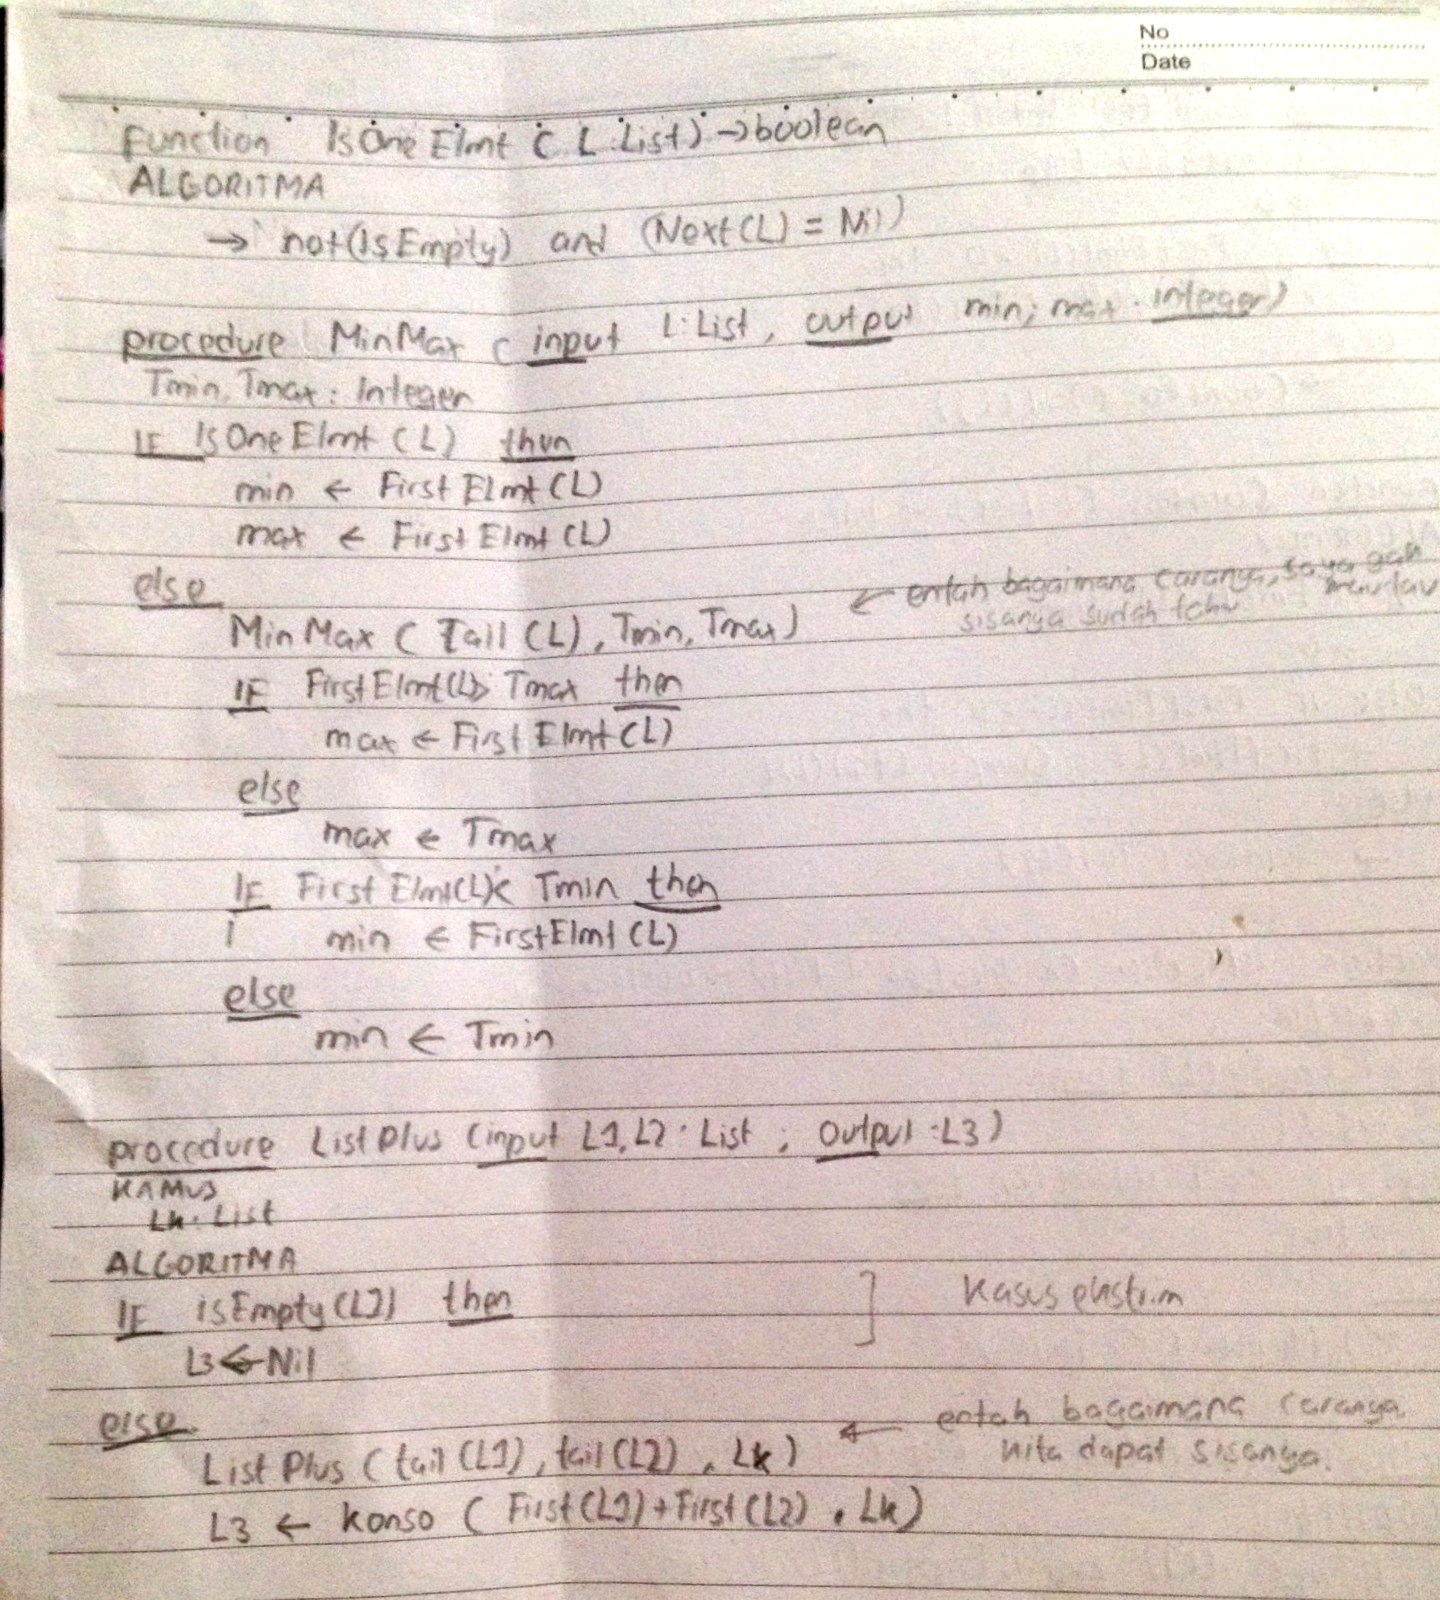 No
Date
Function IsOneElmt ( L : List) → boolean
ALGORITMA
→ not(IsEmpty) and (Next(L) = Nil)
procedure MinMax ( input L : List, output min; max : integer)
Tmin, Tmax : Integer
IF IsOneElmt (L) then
min ← FirstElmt (L)
max ← FirstElmt (L)
else
← entah bagaimana caranya, saya gak mau tau
sisanya sudah tahu
MinMax ( Tail (L), Tmin, Tmax)
IF FirstElmt(L)> Tmax then
max ← FirstElmt (L)
else
max ← Tmax
IF FirstElmt(L)< Tmin then
min ← FirstElmt (L)
else
min ← Tmin
procedure ListPlus (input L1, L2 : List ; output : L3)
KAMUS
Lk : List
ALGORITMA
IF isEmpty (L3) then ] Kasus ekstrim
L3 ← Nil
else
← entah bagaimana caranya
kita dapat sisanya.
ListPlus ( tail (L1), tail (L2), Lk )
L3 ← konso ( First (L1) + First (L2) , Lk)